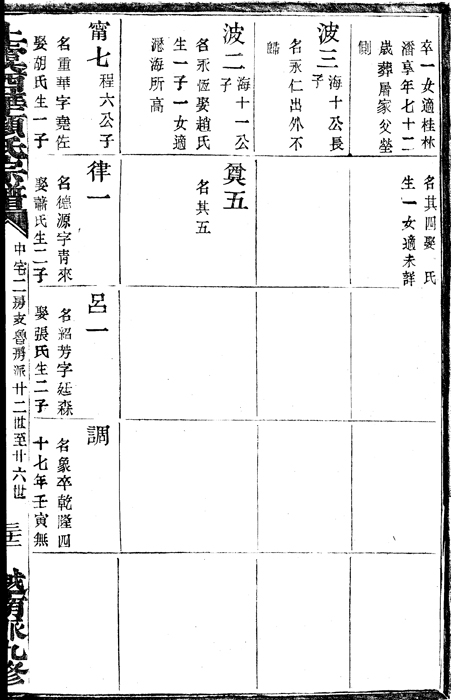 卒一女適桂林
潘享年七十二
歲葬居家父塋
側
名其四娶　氏
生一女適未詳
波三
海十公長
子
名永仁出外不
歸
波二
海十一公
子
名永恆娶趙氏
生一子一女適
滬海所高
質五
名其五
甯七
程六公子
名重華字堯佐
娶胡氏生一子
律一
名德源字青來
娶蕭氏生二子
呂一
名紹芳字廷森
娶張氏生二子
調
名象卒乾隆四
十七年壬寅無
宗譜
中宅二房支魯房派廿二世至廿六世